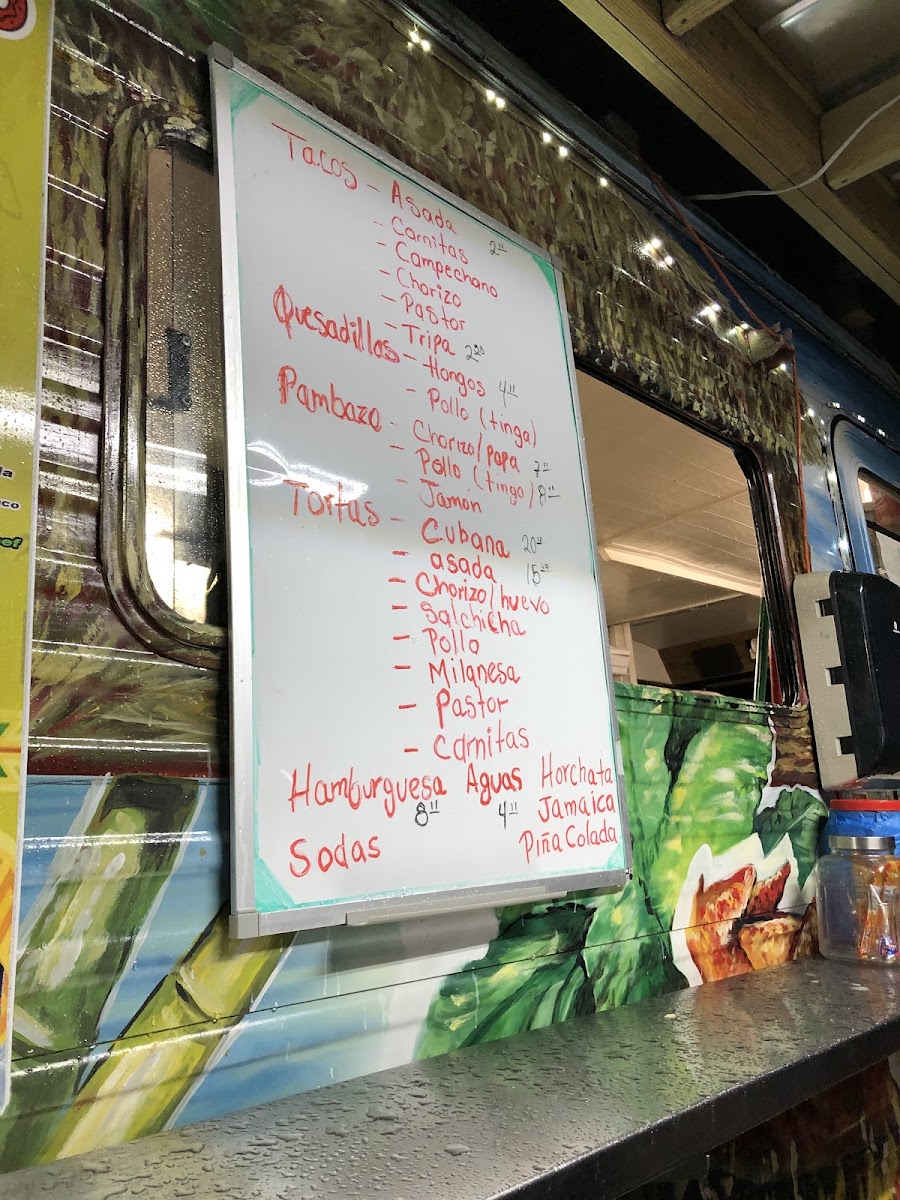 Tacos - Asada
- Carnitas 2⁰⁰
- Campechano
- Chorizo
- Pastor
- Tripa 2⁵⁰
Quesadillas - Hongos 4⁰⁰
- Pollo (tinga)
Pambazo - Chorizo/papa 7⁰⁰
- Pollo (tinga) 8⁰⁰
- Jamón
Tortas - Cubana 20⁰⁰
- asada 15⁰⁰
- Chorizo/huevo
- Salchicha
- Pollo
- Milanesa
- Pastor
- Carnitas
Hamburguesa Aguas Horchata
8⁰⁰ 4⁰⁰ Jamaica
Sodas Piña Colada